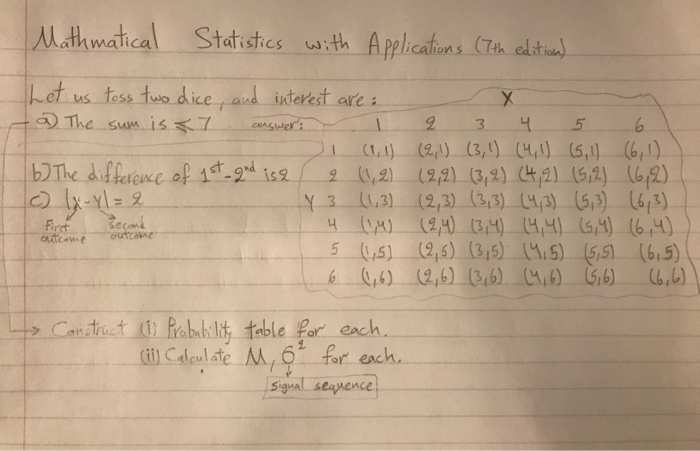 Mathmatical Statistics with Applications (7th edition)
Let us toss two dice, and interest are:
X
a) The sum is ≤ 7 answer: 1 2 3 4 5 6
1 (1,1) (2,1) (3,1) (4,1) (5,1) (6,1)
b) The difference of 1st-2nd is 2 2 (1,2) (2,2) (3,2) (4,2) (5,2) (6,2)
c) |x-y| = 2 Y 3 (1,3) (2,3) (3,3) (4,3) (5,3) (6,3)
First outcome second outcome 4 (1,4) (2,4) (3,4) (4,4) (5,4) (6,4)
5 (1,5) (2,5) (3,5) (4,5) (5,5) (6,5)
6 (1,6) (2,6) (3,6) (4,6) (5,6) (6,6)
→ Construct (i) Probability table for each.
(ii) Calculate M, σ² for each.
signal sequence